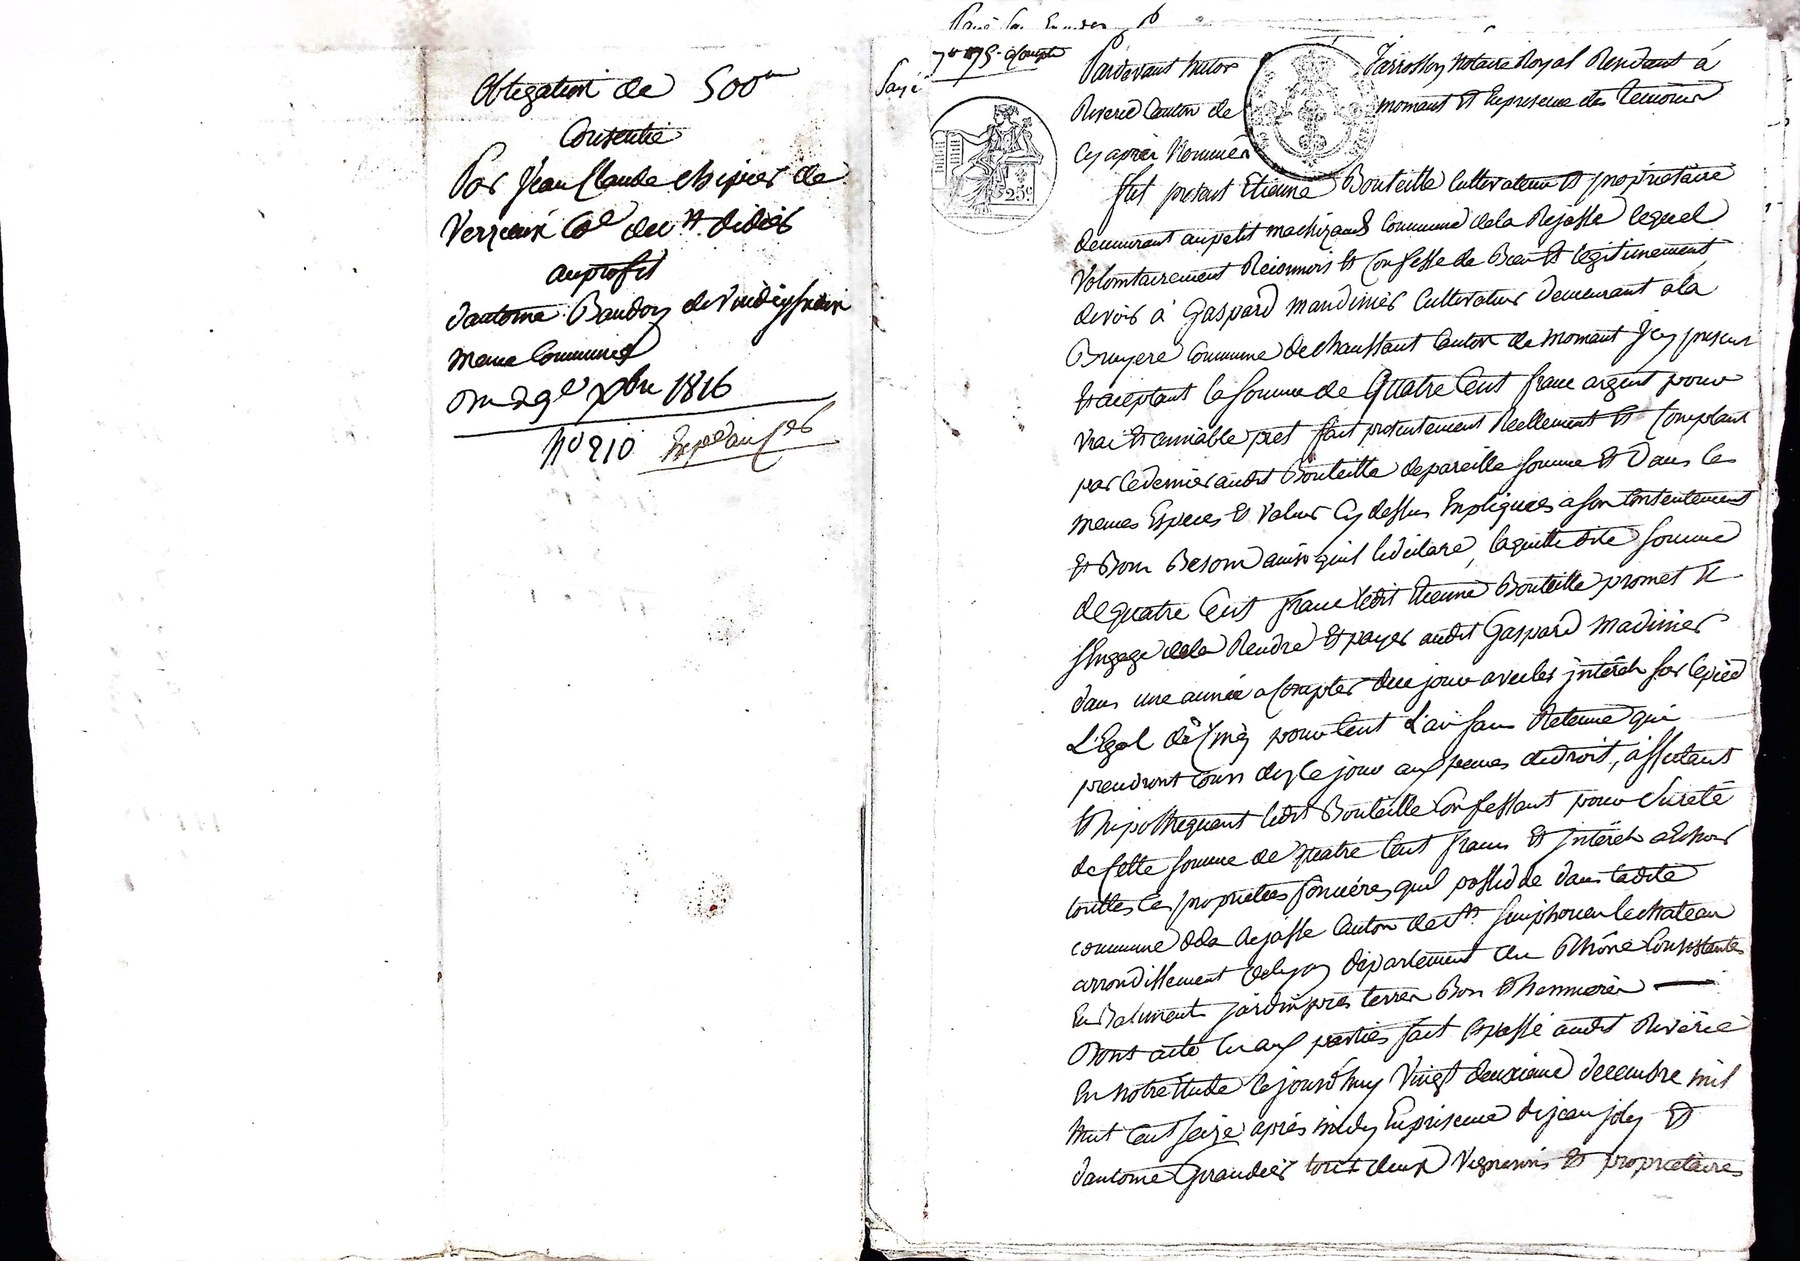 Obligation de 500
Consentie
Par Jean Claude chipier de
Verzieux Cne de St didier
auprofit
dantoine Baudoy de
meme Commune
Du 29e xbre 1816
No 210 Expe
Payé
Pardevant Victor Jarrosson Notaire Royal Residant à
Riverie Canton de mornant Et Enpresence des temoins
Cy après Nommés
25c
fut present Etienne Bouteille Cultivateur Et proprietaire
demeurant au petit machizaud Commune dela Rejasse lequel
Volontairement Reconnois Et Confesse de Bien Et legitimement
devoir à Gaspard mandinier Cultivateur demeurant ala
Bruyere Commune de chaussant Canton de mornant Jcy present
Et aceptant la somme de Quatre Cent franc argent pour
vrai Et amiable pret fait presentement Reellement Et Comptant
par ledernier audit Bouteille depareille somme Et dans les
memes Especes Et valeur Cy dessus Expliquees a son Consentement
Et Bon Besoin ainsi quil ledeclare, laquelle dite somme
de quatre Cent franc ledit Etienne Bouteille promet Et
sEngage dela Rendre Et payer audit Gaspard madinier
dans une année a Compter de ce jour avec les jntérêts sur lepied
L'Egal de Cinq pour Cent L'an sans Retenue qui
prendront Cours des Ce jour aux peines dedroit, affectant
Et hipothequant ledit Bouteille Confessant pour sureté
de Cette somme de quatre Cent francs Et jntérêts a Echoir
touttes les proprietées foncières quil possede dans ladite
commune dela Rejasse Canton de St Simphorien lechateau
arrondissement delyon departement du Rhône Consistantes
En Batiments jardin prés terres Bois Et hermières
Dont acte Lu aux parties fait Et passé audit Riverie
En notre Etude Cejourd'huy Vingt deuxieme decembre mil
huit Cent seize après midy Enpresence de jean joly Et
dantoine Grandier tout deux Vignerons Et proprietaires